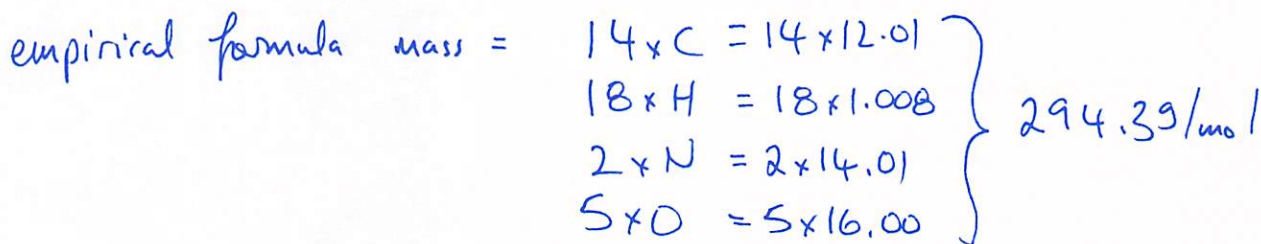 empirical formula mass = 14×C = 14×12.01
18×H = 18×1.008
2×N = 2×14.01
5×O = 5×16.00
294.3g/mol